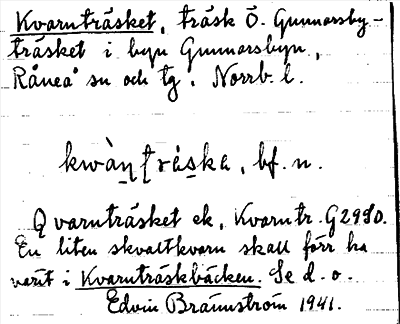 Kvarnträsket, träsk Ö. Gunnarsby-
träsket i byn Gunnarsbyn,
Råneå sn och tg. Norrb. l.
kwàṇṭrǻska, bf. n.
Qvarnträsket ek, Kvarntr. G2980.
En liten skvaltkvarn skall förr ha
varit i Kvarnträskbäcken. Se d. o.
Edvin Brännström 1941.